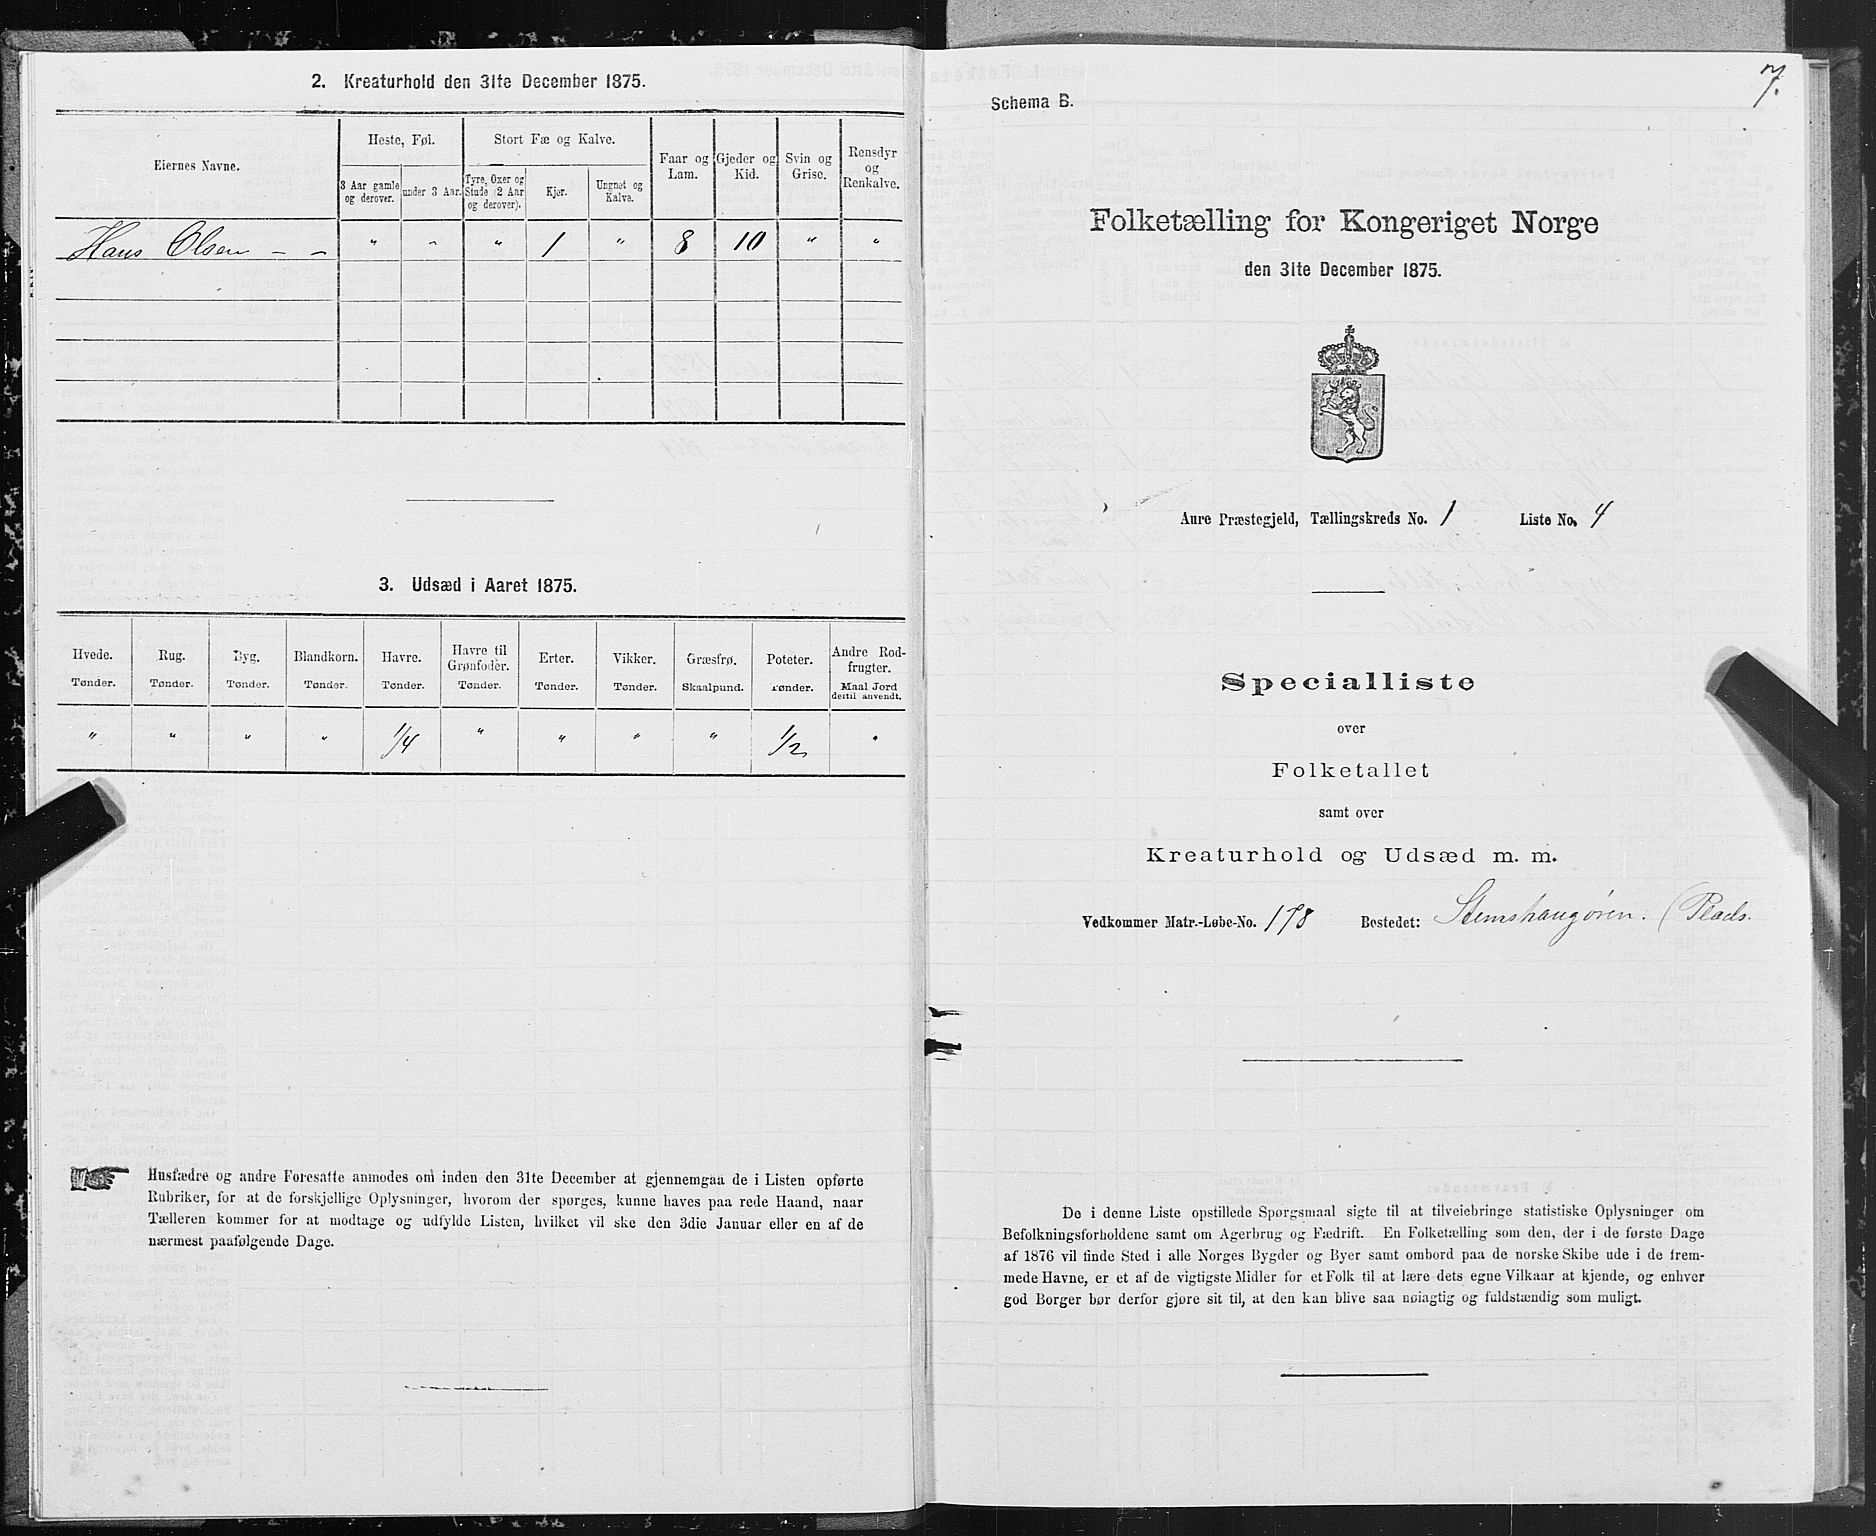 2. Kreaturhold den 31te December 1875.
Eiernes Navne.
Heste, Føl.
Stort Fæ og Kalve.
Faar og Lam.
Gjeder og Kid.
Svin og Grise.
Rensdyr og Renkalve.
3 Aar gamle og derover.
under 3 Aar.
Tyre, Oxer og Stude (2 Aar og derover).
Kjør.
Ungnøt og Kalve.
Hans Olsen - - " " " 1 " 8 10 " "
3. Udsæd i Aaret 1875.
Hvede. Rug. Byg. Blandkorn. Havre. Havre til Grønfoder. Erter. Vikker. Græsfrø. Poteter. Andre Rodfrugter.
Tønder. Tønder. Tønder. Tønder. Tønder. Tønder. Tønder. Tønder. Skaalpund. Tønder. Maal Jord dertil anvendt.
" " " " 1/4 " " " " 1/2 "
Husfædre og andre Foresatte anmodes om inden den 31te December at gjennemgaa de i Listen opførte
Rubriker, for at de forskjellige Oplysninger, hvorom der spørges, kunne haves paa rede Haand, naar
Tælleren kommer for at modtage og udfylde Listen, hvilket vil ske den 3die Januar eller en af de
nærmest paafølgende Dage.
7.
Schema B.
Folketælling for Kongeriget Norge
den 31te December 1875.
Aure Præstegjeld, Tællingskreds No. 1 Liste No. 4
Specialliste
over
Folketallet
samt over
Kreaturhold og Udsæd m. m.
Vedkommer Matr.-Løbe-No. 178 Bostedet: Stemshaugøren. (Plads.
De i denne Liste opstillede Spørgsmaal sigte til at tilveiebringe statistiske Oplysninger om
Befolkningsforholdene samt om Agerbrug og Fædrift. En Folketælling som den, der i de første Dage
af 1876 vil finde Sted i alle Norges Bygder og Byer samt ombord paa de norske Skibe ude i de frem-
mede Havne, er et af de vigtigste Midler for et Folk til at lære dets egne Vilkaar at kjende, og enhver
god Borger bør derfor gjøre sit til, at den kan blive saa nøiagtig og fuldstændig som muligt.